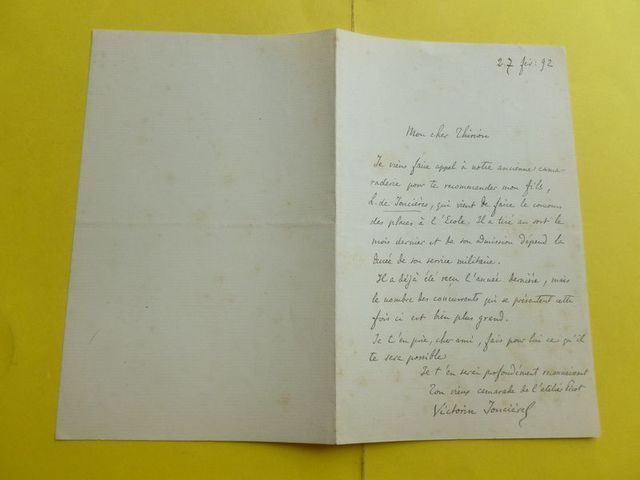 27 fév: 92
Mon cher Thirion
Je viens faire appel à notre ancienne cama-
raderie pour te recommander mon fils,
L. de Joncières, qui vient de faire le concours
des places à l'Ecole. Il a tiré au sort le
mois dernier et de son admission dépend la
durée de son service militaire.
Il a déjà été reçu l'année dernière, mais
le nombre des concurrents qui se présentent cette
fois ci est bien plus grand.
Je t'en prie, cher ami, fais pour lui ce qu'il
te sera possible
Je t'en serai profondément reconnaissant
Ton vieux camarade de l'atelier Picot
Victorin Joncières